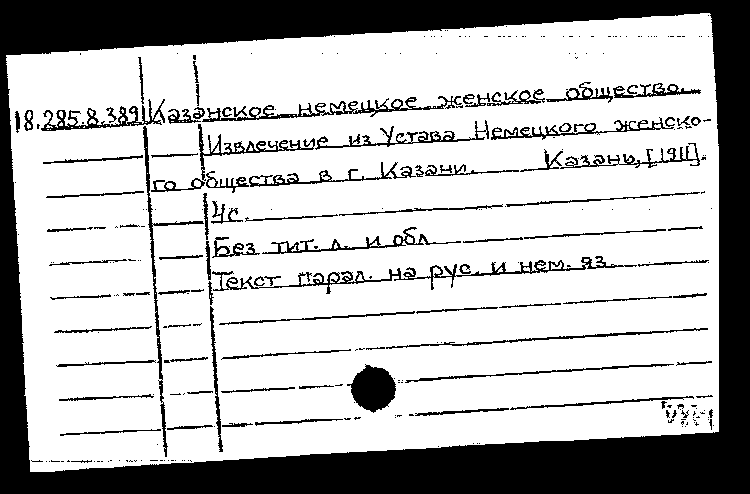 18.285.8.389 Казанское немецкое женское общество.
Извлечение из Устава Немецкого женско-
го общества в г. Казани. Казань, [1911].
4с.
Без тит. л. и обл.
Текст парал. на рус. и нем. яз.